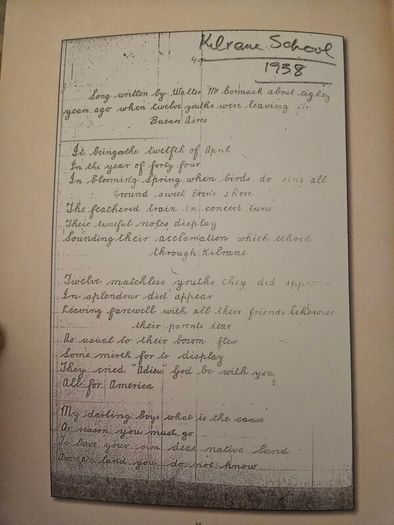 Kilrane School
1938
Song written by Walter Mc Cormack about eighty
years ago when twelve youths were leaving for
Buenos Aires
It being the twelfth of April
In the year of forty four
In blooming Spring when birds do sing all
round sweet Erin's shore
The feathered train in concert tune
Their tuneful notes display
Sounding their acclamation which echoed
through Kilrane
Twelve matchless youths they did appear
In splendour did appear
Leaving farewell with all their friends likewise
their parents dear
As usual to their bosom flew
Some mirth for to display
They cried "Adieu" God be with you
All for America
My darling boys what is the cause
Or reason you must go
To leave your own dear native land
land you do not know